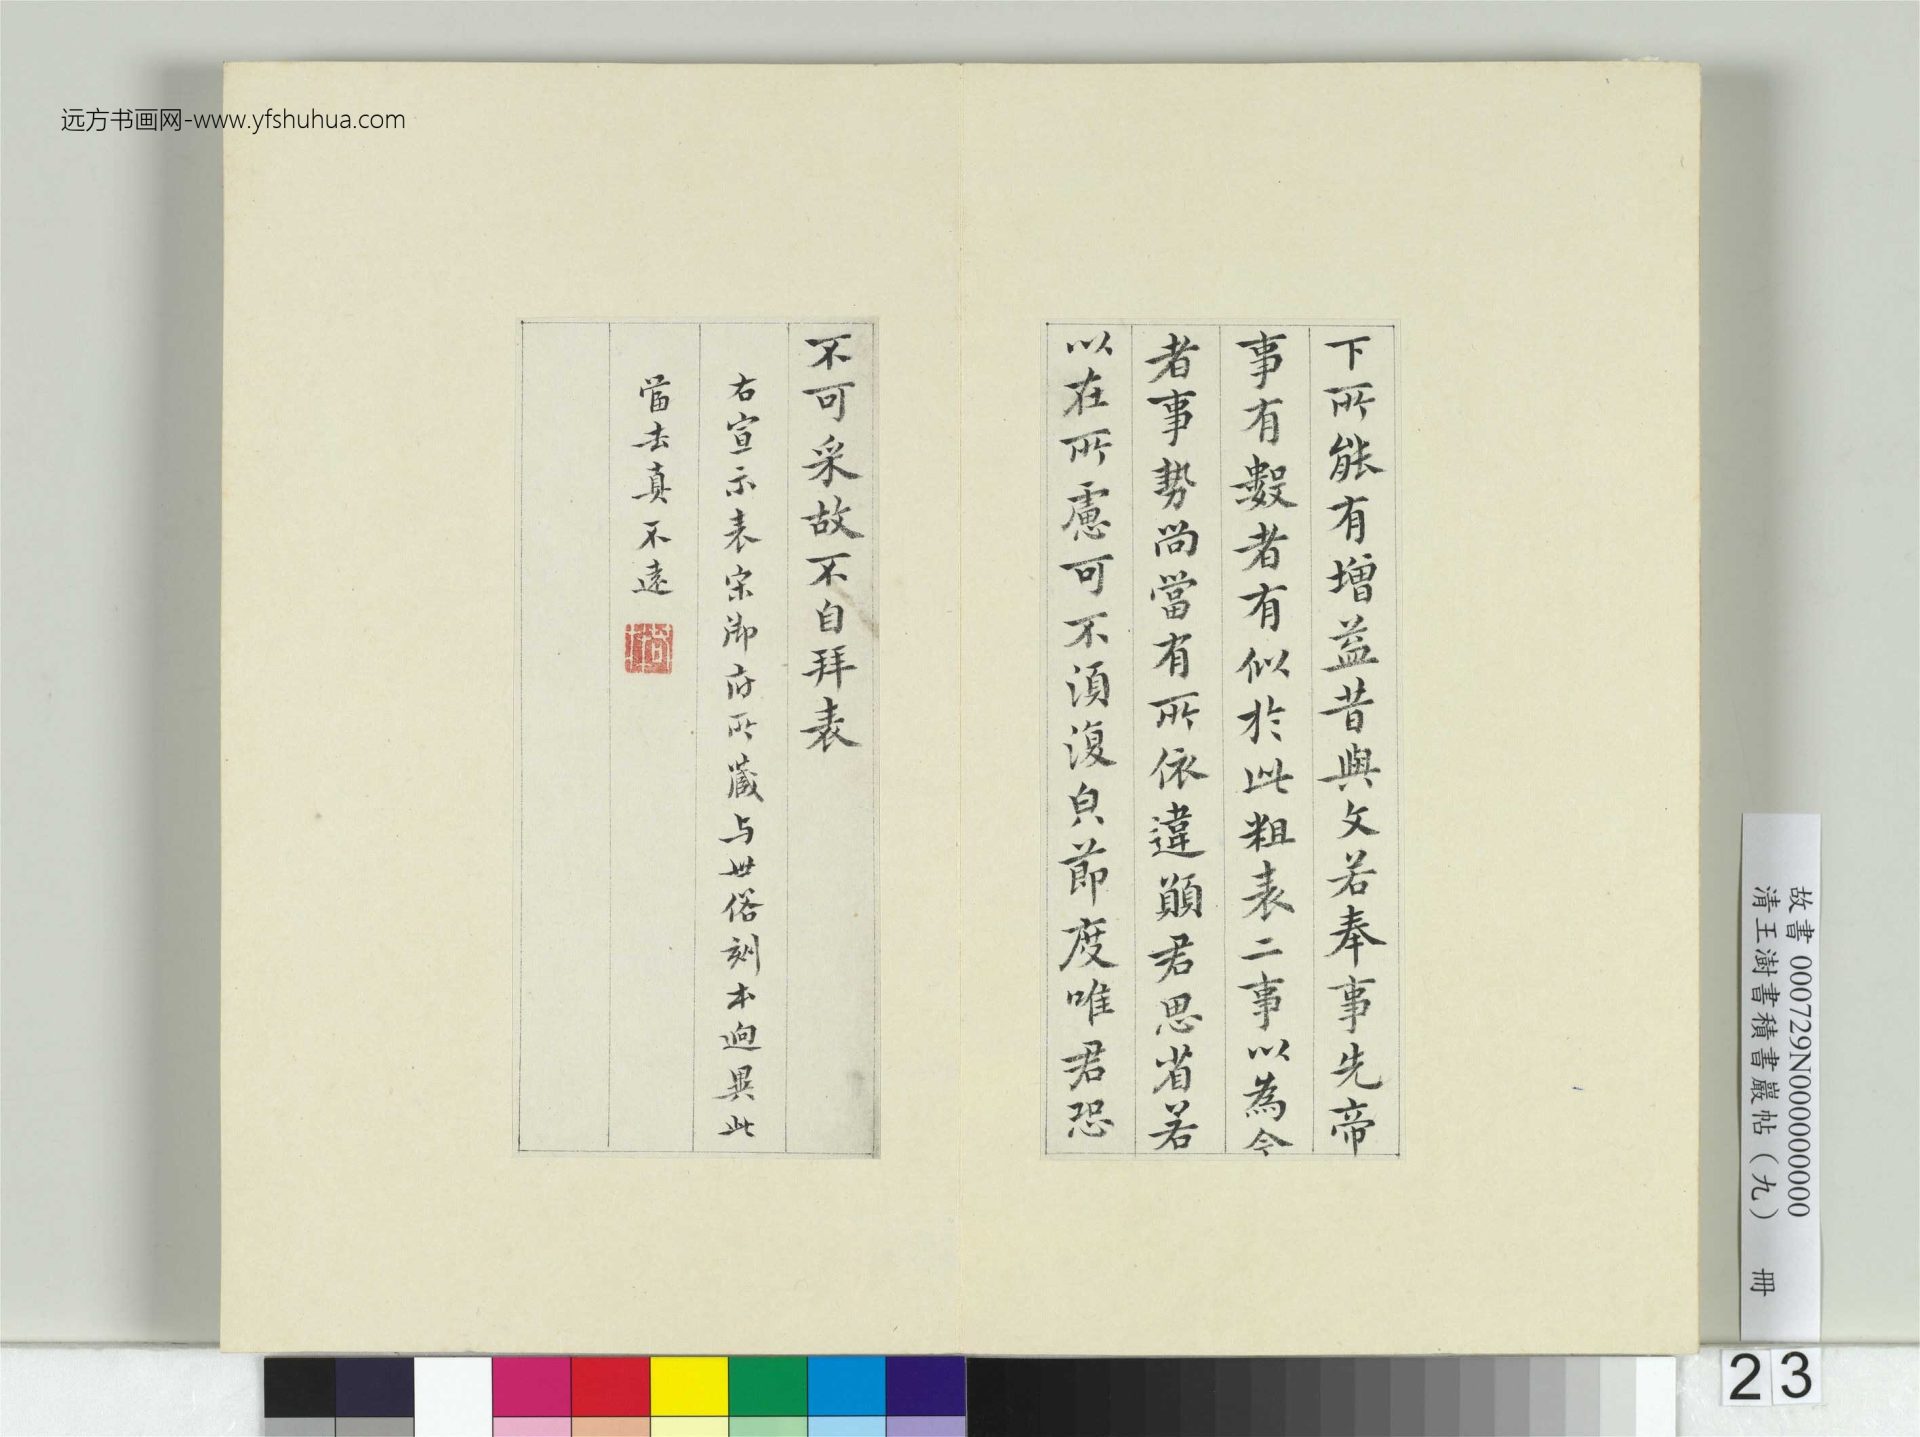 远方书画网-www.yfshuhua.com
下所能有增益昔與文若奉事先帝
事有數者有似於此粗表二事以為今
者事勢尚當有所依違願君思省若
以在所慮可不須復皃節度唯君恐
不可采故不自拜表
右宣示表宋御府所藏与世俗刻本逈異此
當去真不遠
故書 000729N000000000
清王澍書積書巖帖(九) 冊
23